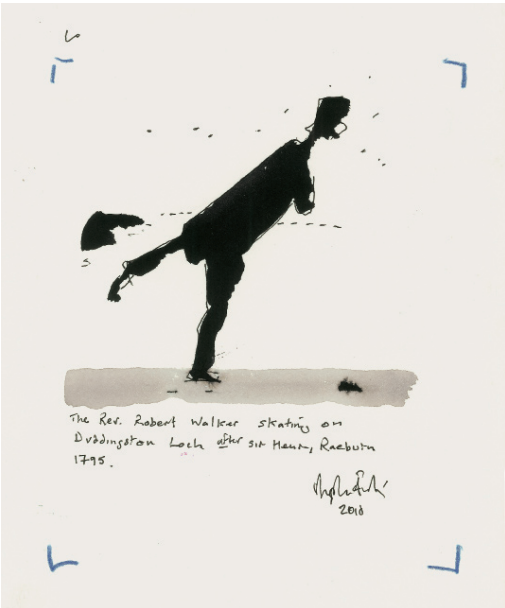 The Rev. Robert Walker skating on
Duddingston Loch after Sir Henry Raeburn
1795.
2010